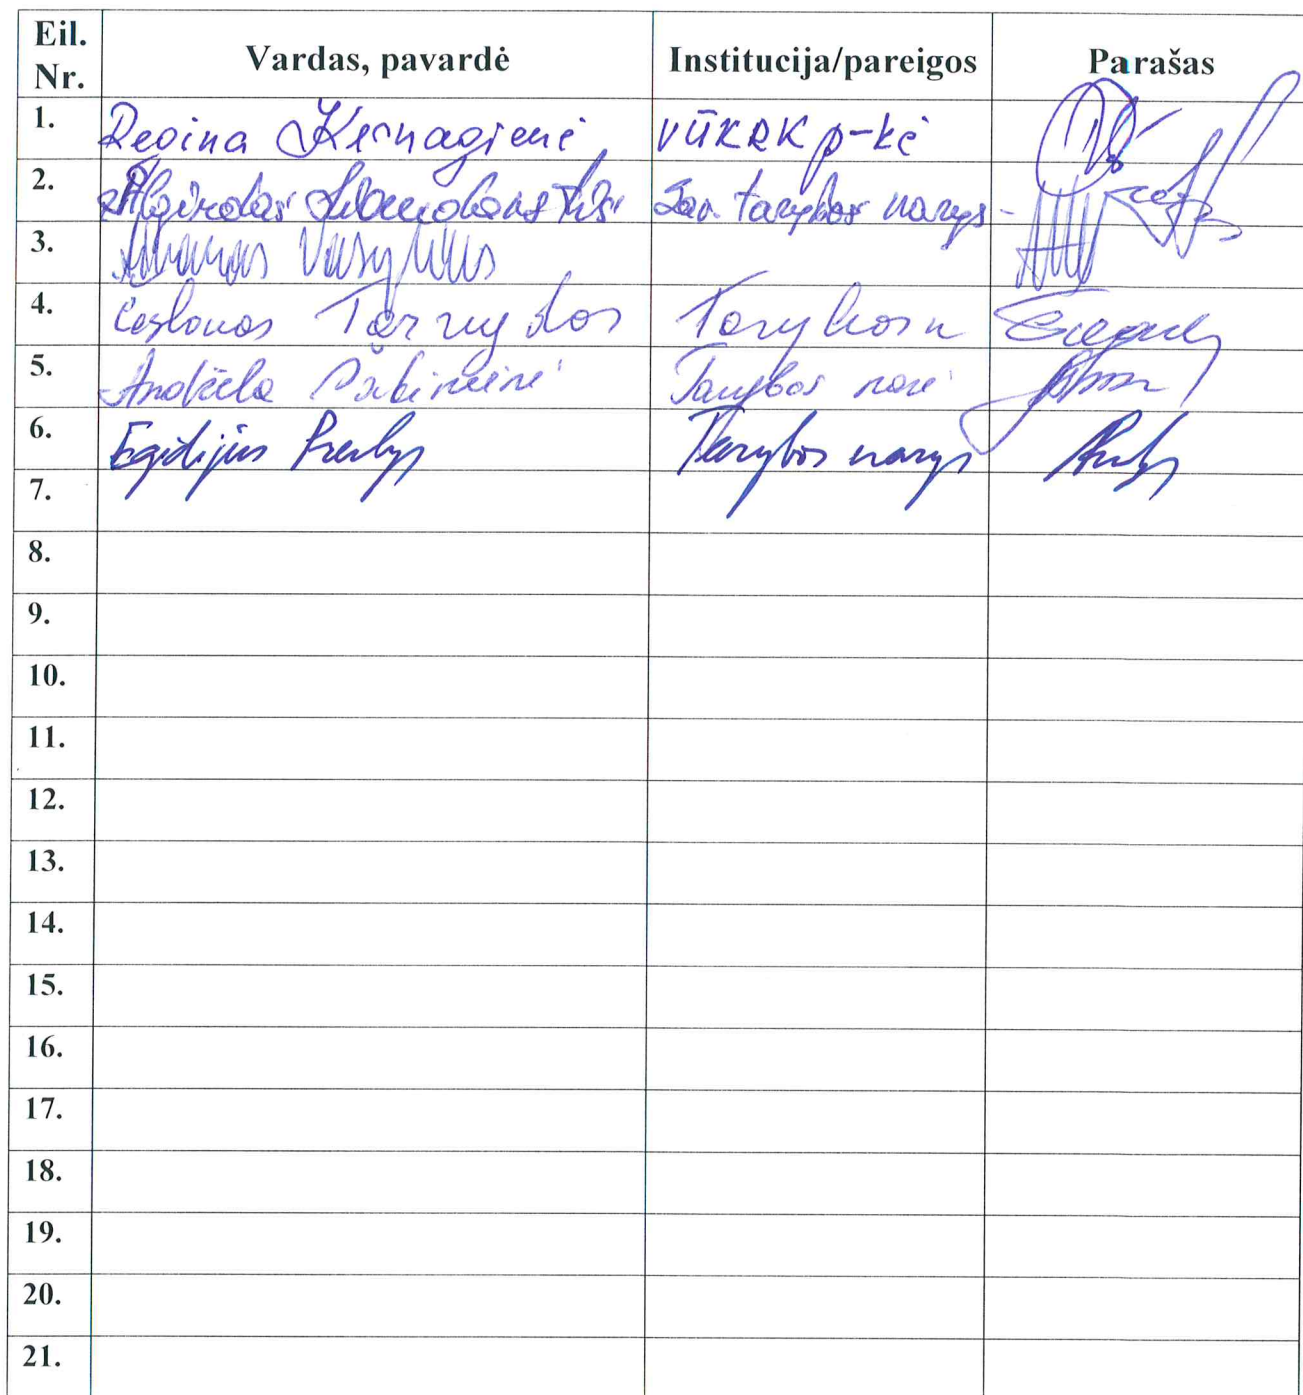 Eil. Nr. Vardas, pavardė Institucija/pareigos Parašas
1. Regina Kernagienė VŪKRK p-kė
2. Algirdas Sav. tarybos narys
3.
4. Česlovas Tarybos n
5. Andžela Tarybos narė
6. Egidijus Tarybos narys
7.
8.
9.
10.
11.
12.
13.
14.
15.
16.
17.
18.
19.
20.
21.